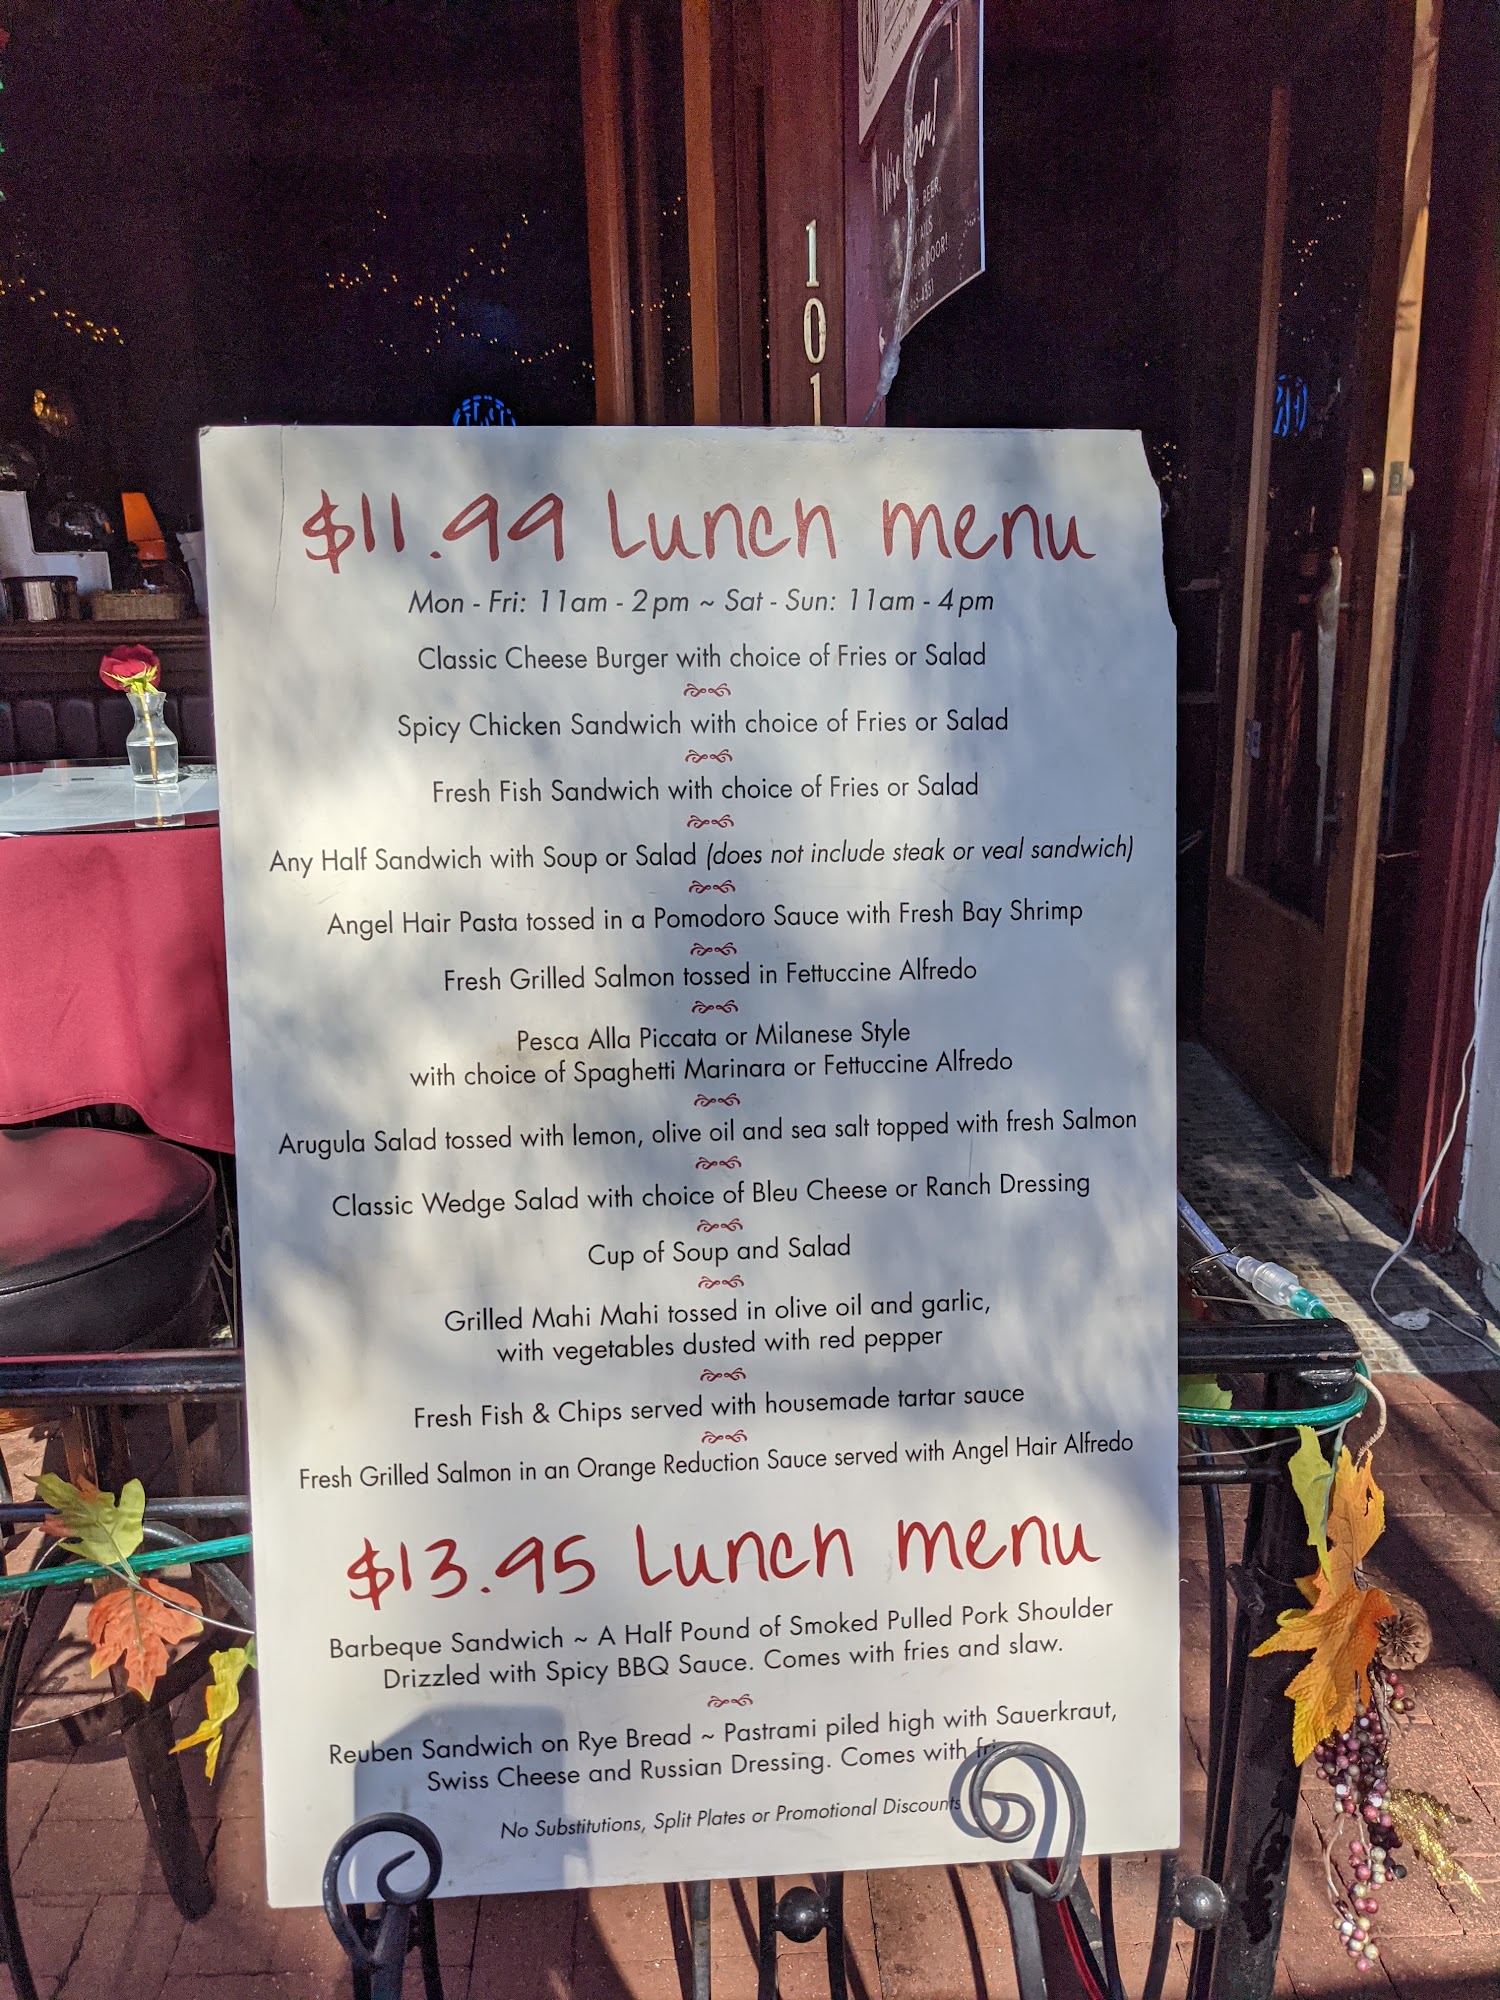 We're Open!
BEER,
DOOR!
101
$11.99 Lunch menu
Mon - Fri: 11am - 2pm ~ Sat - Sun: 11am - 4pm
Classic Cheese Burger with choice of Fries or Salad
Spicy Chicken Sandwich with choice of Fries or Salad
Fresh Fish Sandwich with choice of Fries or Salad
Any Half Sandwich with Soup or Salad (does not include steak or veal sandwich)
Angel Hair Pasta tossed in a Pomodoro Sauce with Fresh Bay Shrimp
Fresh Grilled Salmon tossed in Fettuccine Alfredo
Pesca Alla Piccata or Milanese Style
with choice of Spaghetti Marinara or Fettuccine Alfredo
Arugula Salad tossed with lemon, olive oil and sea salt topped with fresh Salmon
Classic Wedge Salad with choice of Bleu Cheese or Ranch Dressing
Cup of Soup and Salad
Grilled Mahi Mahi tossed in olive oil and garlic,
with vegetables dusted with red pepper
Fresh Fish & Chips served with housemade tartar sauce
Fresh Grilled Salmon in an Orange Reduction Sauce served with Angel Hair Alfredo
$13.95 Lunch menu
Barbeque Sandwich ~ A Half Pound of Smoked Pulled Pork Shoulder
Drizzled with Spicy BBQ Sauce. Comes with fries and slaw.
Reuben Sandwich on Rye Bread ~ Pastrami piled high with Sauerkraut,
Swiss Cheese and Russian Dressing. Comes with
No Substitutions, Split Plates or Promotional Discounts